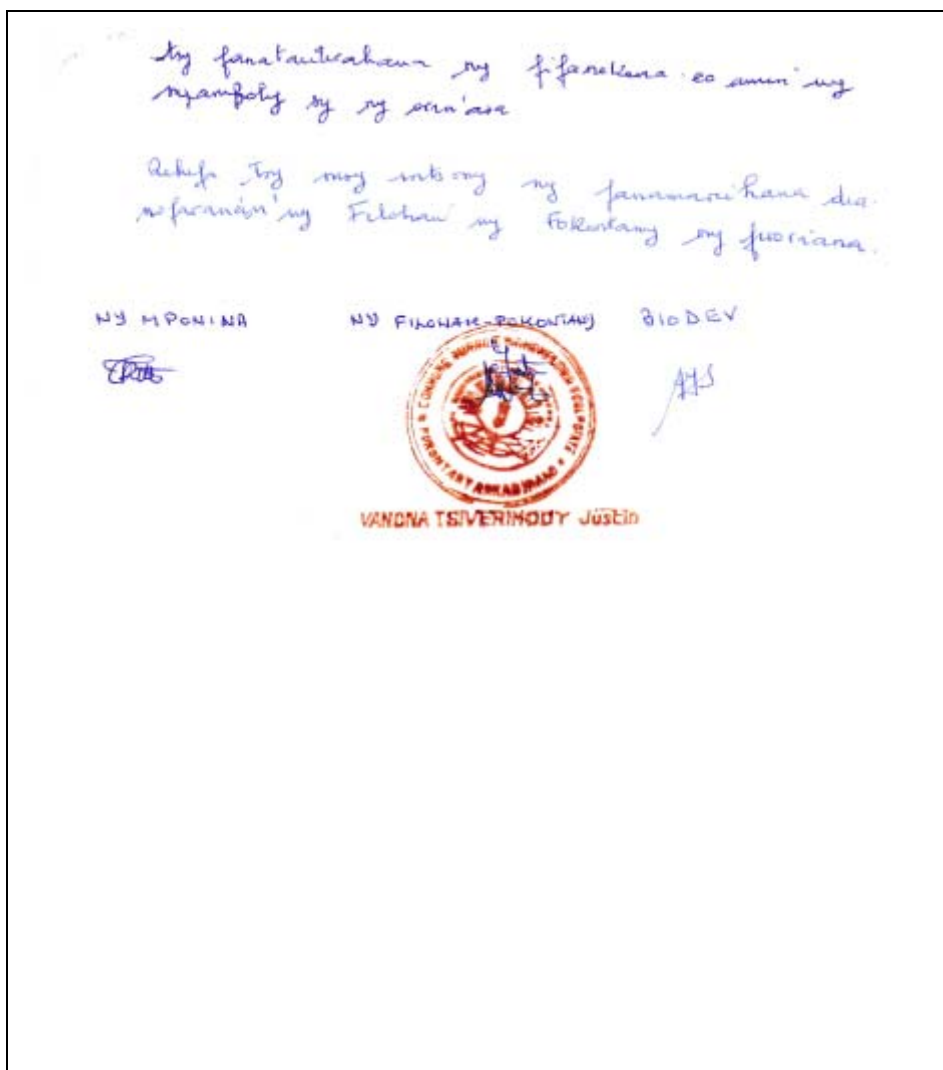 ny fanatanterahana ny fifanekena eo amin'ny
mpamboly sy ny orin'asa
Rehefa tsy misy ny fanamarihana dia
nofaranan'ny Filohan'ny Fokontany ny fivoriana.
NY MPONINA NY FILOHAN-FOKONTANY BIODEV
COMMUNE RURALE
FOKONTANY
VANONA TSIVERIHODY Justin